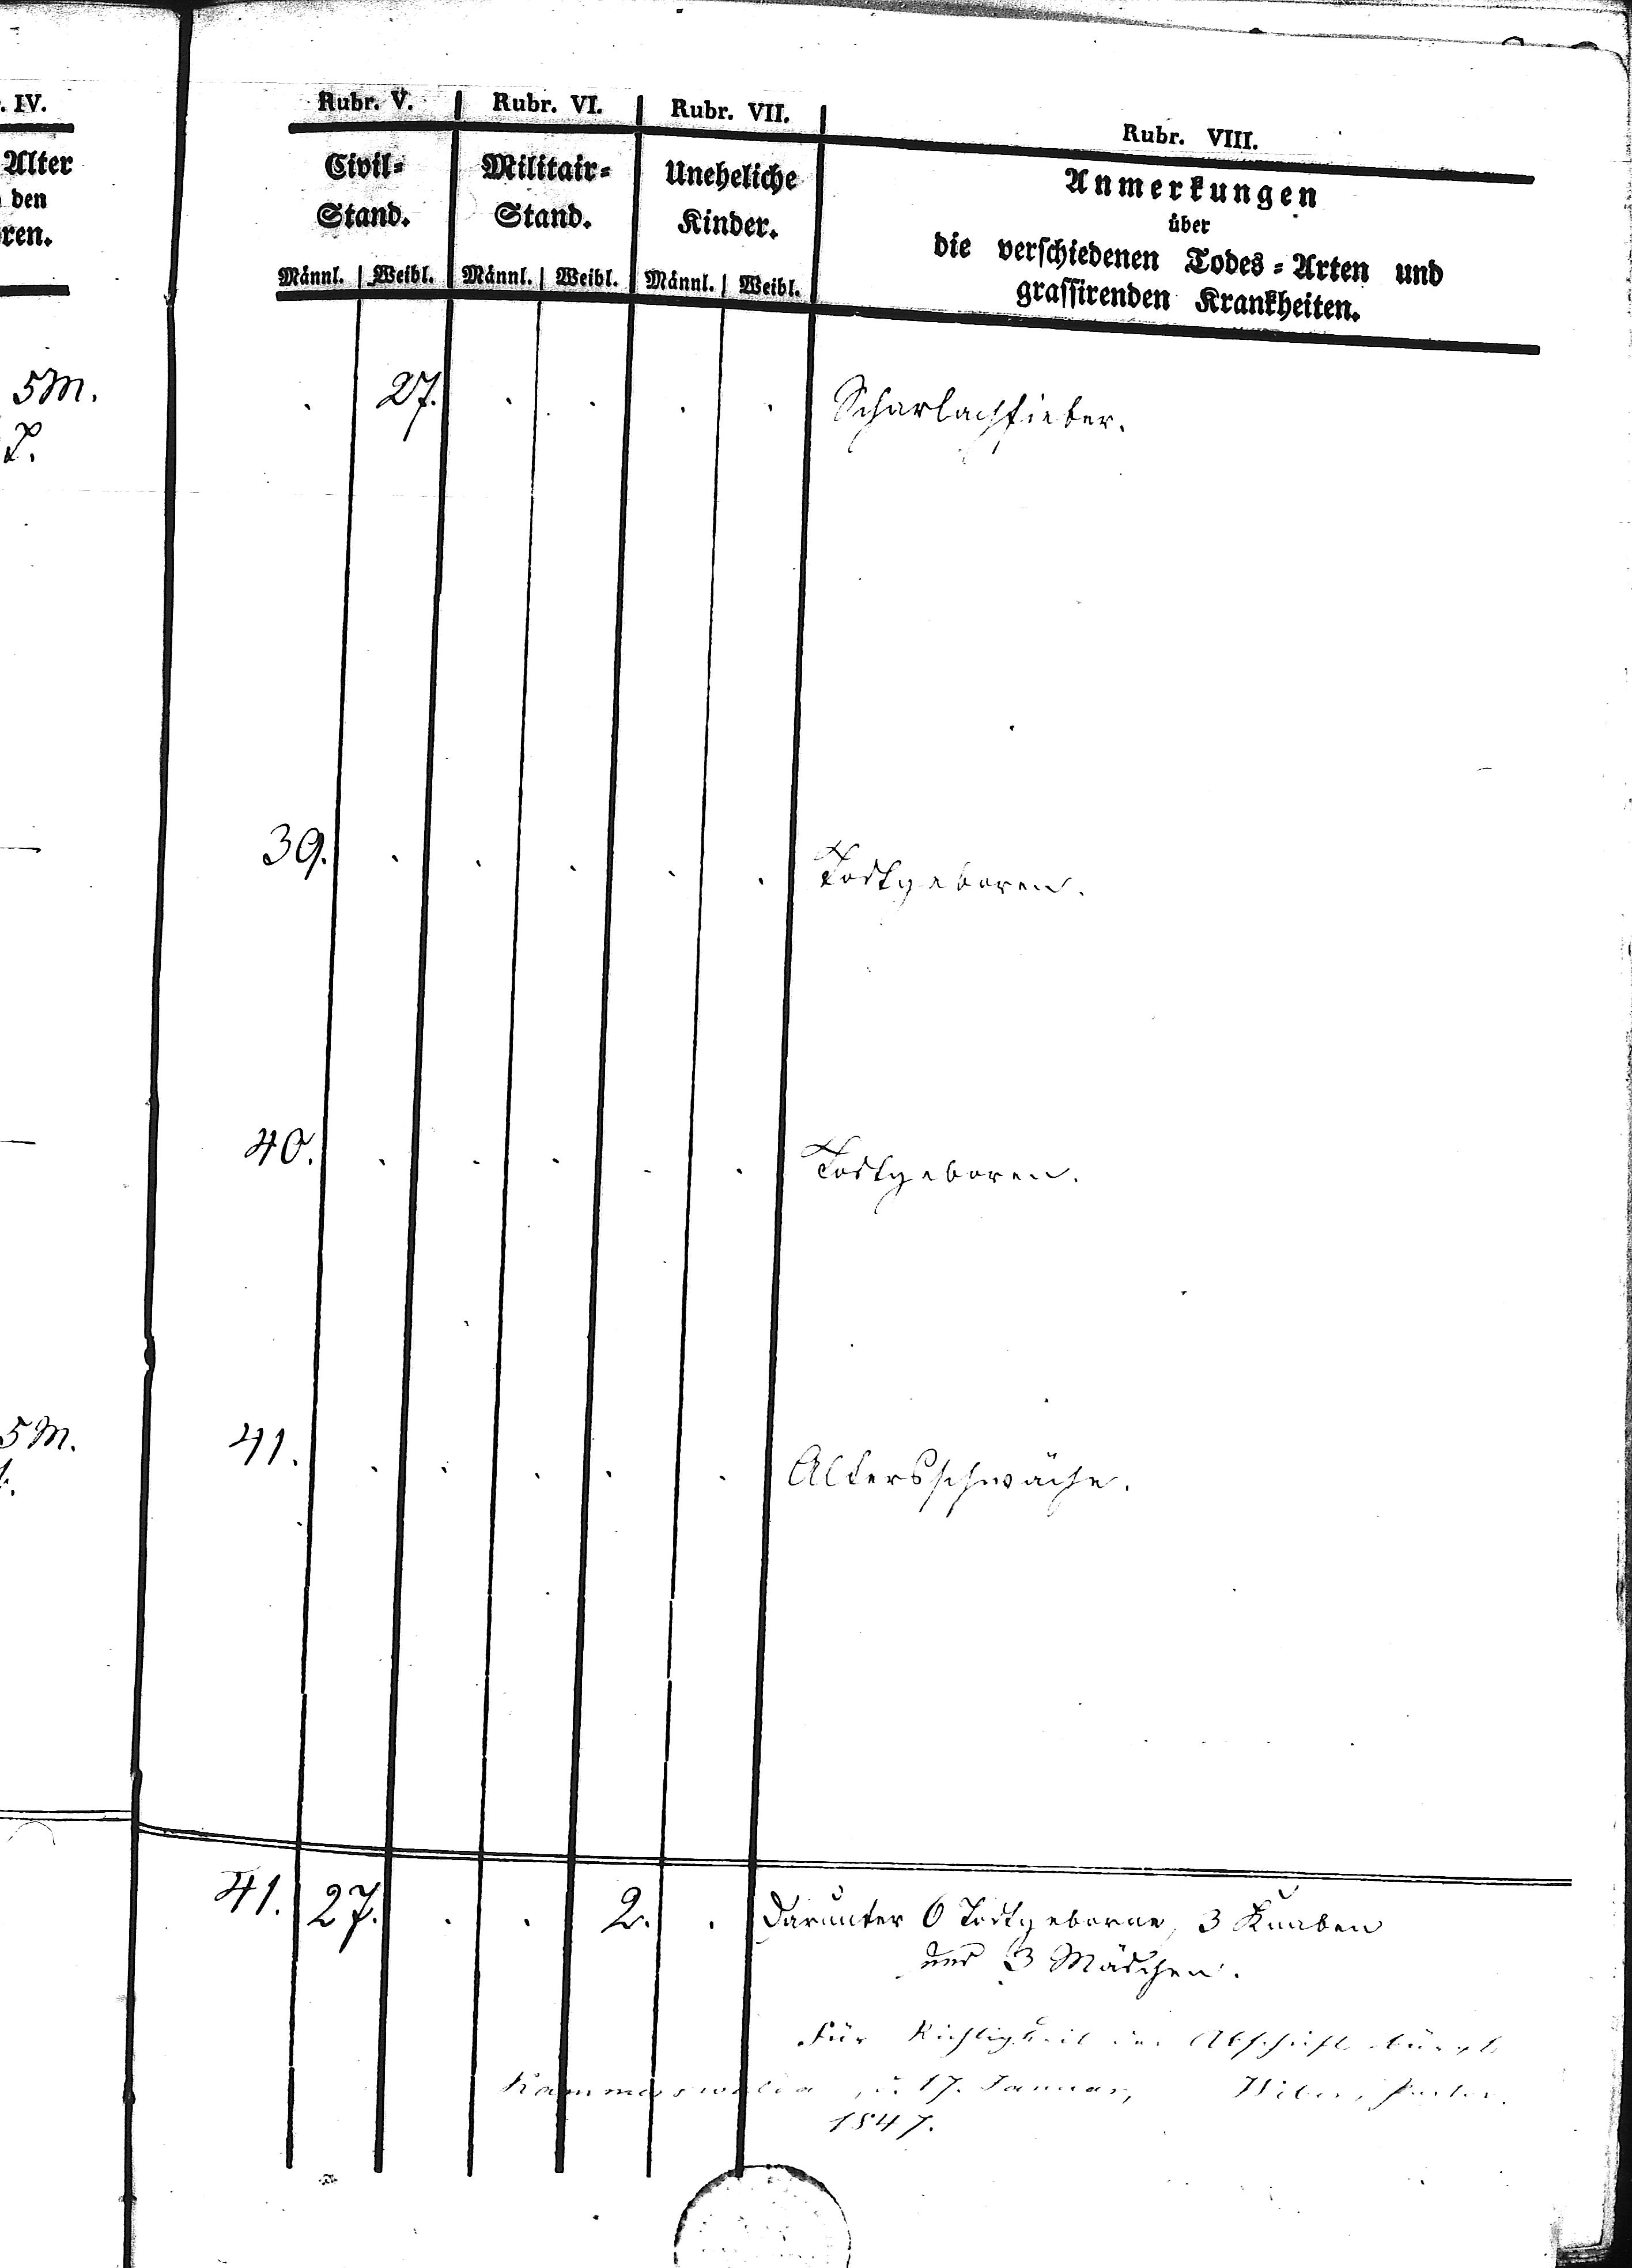 . IV.
Alter
den
ren.
5M.
T.
5M.
Rubr. V. Rubr. VI. Rubr. VII. Rubr. VIII.
Civil-Stand. Militair-Stand. Uneheliche Kinder. Anmerkungen
über
die verschiedenen Todes-Arten und
grassirenden Krankheiten.
Männl. Weibl. Männl. Weibl. Männl. Weibl.
. 27. . . . . Scharlachfieber.
39. . . . . . Todtgeboren.
40. . . . . . Todtgeboren.
41. . . . . . Altersschwäche.
41. 27. . . 2. . Darunter 6 Todtgeborne, 3 Knaben
und 3 Mädchen.
Für Richtigkeit der Abschrift bürgt
17. Januar,
1847.